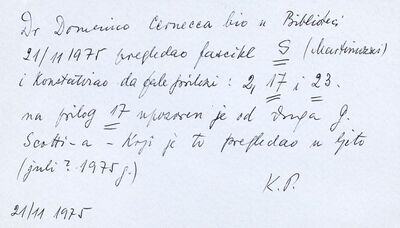 Dr Domenico Cernecca bio u Biblioteci
21/11 1975 pregledao fascikl S (Martinuzzi)
i konstatirao da fale prilozi : 2, 17 i 23.
na prilog 17 upozoren je od druga G.
Scotti-a - koji je to pregledao u ljeto
(juli ? 1975 g.)
K.P.
21/11 1975